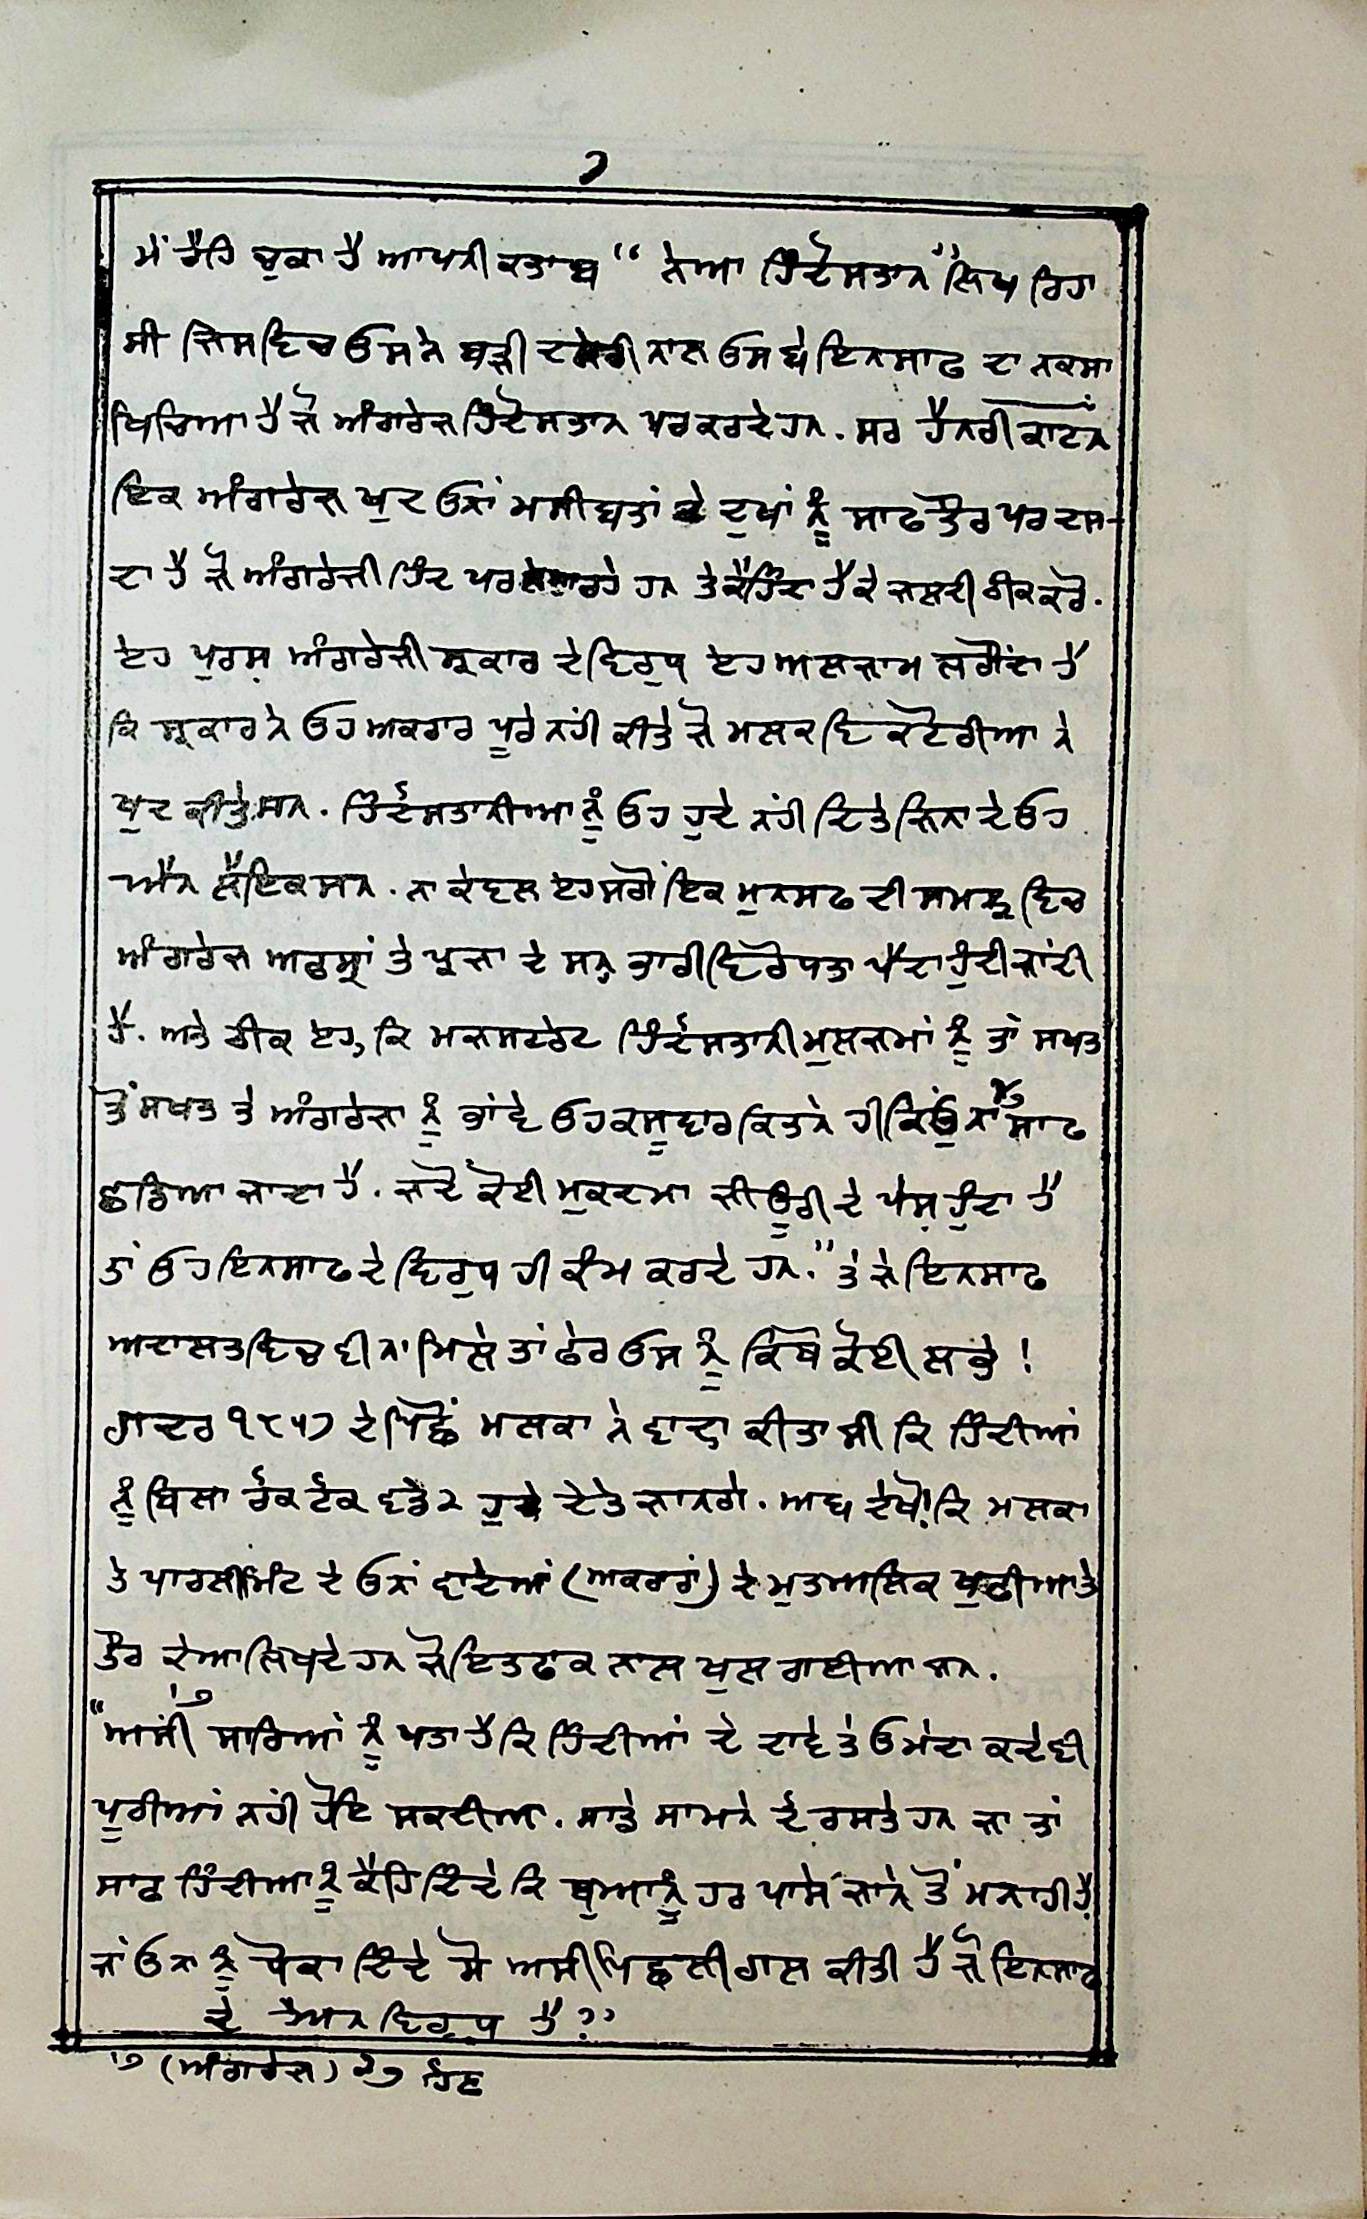 ੭
ਮੇਂ ਰੈਹਿ ਚੁਕਾ ਹੈ ਆਪਨੀ ਕਤਾਬ "ਨੇਆ ਹਿੰਦੋਸਤਾਨ" ਲਿਖ ਰਿਹਾ
ਸੀ ਜਿਸ ਵਿਚ ਉਸ ਨੇ ਬੜੀ ਨਾਲ ਉਸ ਬੇ ਇਨਸਾਫ ਦਾ ਨਕਸਾ
ਖਿਚਿਆ ਹੈ ਜੋ ਅੰਗਰੇਜ ਹਿੰਦੋਸਤਾਨ ਪਰ ਕਰਦੇ ਹਨ. ਸਰ ਹੈਨਰੀ ਕਾਟਨ
ਇਕ ਅੰਗਰੇਜ ਖੁਦ ਉਨਾਂ ਮਸੀਬਤਾਂ ਦੇ ਦੁਖਾਂ ਨੂੰ ਸਾਫ ਤੌਰ ਪਰ ਦਸ-
ਦਾ ਹੈ ਜੋ ਅੰਗਰੇਜੀ ਹਿੰਦ ਪਰ ਹਨ ਤੇ ਕੈਹਿੰਦਾ ਹੈ ਕੇ ਜਲਦੀ ਠੀਕ ਕਰੋ.
ਏਹ ਪੁਰਸ਼ ਅੰਗਰੇਜੀ ਸ੍ਰਕਾਰ ਦੇ ਵਿਰੁਧ ਏਹ ਅਲਜਾਮ ਲਗੌਂਦਾ ਹੈ
ਕਿ ਸ੍ਰਕਾਰ ਨੇ ਓਹ ਅਕਰਾਰ ਪੂਰੇ ਨਹੀਂ ਕੀਤੇ ਜੋ ਮਲਕਾ ਵਿਕਟੋਰੀਆ ਨੇ
ਖੁਦ ਕੀਤੇ ਸਨ. ਹਿੰਦੋਸਤਾਨੀਆ ਨੂੰ ਓਹ ਹੁਦੇ ਨਹੀਂ ਦਿਤੇ ਜਿਨਾ ਦੇ ਓਹ
ਐਨ ਲੈਇਕ ਸਨ. ਨਾ ਕੇਵਲ ਏਹ ਸਗੋਂ ਇਕ ਮੁਨਸਫ ਦੀ ਸਮਝ ਵਿਚ
ਅੰਗਰੇਜ ਅਫਸ੍ਰਾਂ ਤੇ ਪ੍ਰਜਾ ਦੇ ਭਾਰੀ ਵਿਰੋਧਤਾ ਪੈਦਾ ਹੁੰਦੀ ਜਾਂਦੀ
ਹੈ. ਅਤੇ ਠੀਕ ਏਹ, ਕਿ ਮਜਸਟਰੇਟ ਹਿੰਦੋਸਤਾਨੀ ਮੁਲਜਮਾਂ ਨੂੰ ਤਾਂ ਸਖਤ
ਤੋਂ ਸਖਤ ਤੇ ਅੰਗਰੇਜਾ ਨੂੰ ਭਾਂਵੇ ਓਹ ਕਸੂਵਾਰ ਕਿਤਨੇ ਹੀ ਕਿਉਂ ਨਾ ਸਾਫ
ਛਡਿਆ ਜਾਦਾ ਹੈ. ਜਦੋਂ ਕੋਈ ਮੁਕਦਮਾ ਜੀਊਰੀ ਦੇ ਪੇਸ਼ ਹੁੰਦਾ ਹੈ
ਤਾਂ ਓਹ ਇਨਸਾਫ ਦੇ ਵਿਰੁਧ ਹੀ ਕੰਮ ਕਰਦੇ ਹਨ." ਤੇ ਜੇ ਇਨਸਾਫ
ਅਦਾਲਤ ਵਿਚ ਵੀ ਨਾ ਮਿਲੇ ਤਾਂ ਫੇਰ ਉਸ ਨੂੰ ਕਿਥੇ ਕੋਈ ਲਭੇ!
ਗਾਦਰ ੧੮੫੭ ਦੇ ਪਿਛੋਂ ਮਲਕਾ ਨੇ ਵਾਦਾ ਕੀਤਾ ਸੀ ਕਿ ਹਿੰਦੀਆਂ
ਨੂੰ ਬਿਲਾ ਰੋਕ ਟੋਕ ਵਡੇ੨ ਹੁਦੇ ਦੇਤੇ ਜਾਨਗੇ. ਅਬ ਦੇਖੋ! ਕਿ ਮਲਕਾ
ਤੇ ਪਾਰਲੀਮਿੰਟ ਦੇ ਓਨਾਂ ਵਾਦੇਆਂ (ਅਕਰਾਰਾਂ) ਦੇ ਮੁਤਅਲਿਕ ਖੁਫੀਆ ਤੇ
ਤੌਰ ਲਿਖਦੇ ਹਨ ਜੋ ਇਤਫਾਕ ਨਾਲ ਖੁਲ ਗਈਆ ਸਨ.
"ਅਸੀਂ ੧ ਸਾਰਿਆਂ ਨੂੰ ਪਤਾ ਹੈ ਕਿ ਹਿੰਦੀਆਂ ਦੇ ਦਾਵੇ ਤੇ ਉਮੇਦਾ ਕਦੇ ਵੀ
ਪੂਰੀਆਂ ਨਹੀਂ ਹੋਇ ਸਕਦੀਆ. ਸਾਡੇ ਸਾਮਨੇ ਦੋ ਰਸਤੇ ਹਨ ਜਾ ਤਾਂ
ਸਾਫ ਹਿੰਦੀਆ ਨੂੰ ਕੈਹਿ ਦਿੰਦੇ ਕਿ ਥੁਆਨੂੰ ਹਰ ਪਾਸੇ ਜਾਨੇ ਤੋਂ ਮਨਾਹੀ ਹੈ
ਜਾਂ ਓਨਾ ਨੂੰ ਧੋਕਾ ਦਿੰਦੇ ਸੋ ਅਸੀਂ ਪਿਛਲੀ ਗਲ ਕੀਤੀ ਹੈ ਜੋ ਇਨਸਾਫ
ਦੇ ਐਨ ਵਿਰੁਧ ਹੈ?"
੧ (ਅੰਗਰੇਜ) ੨ ਹੋਣ